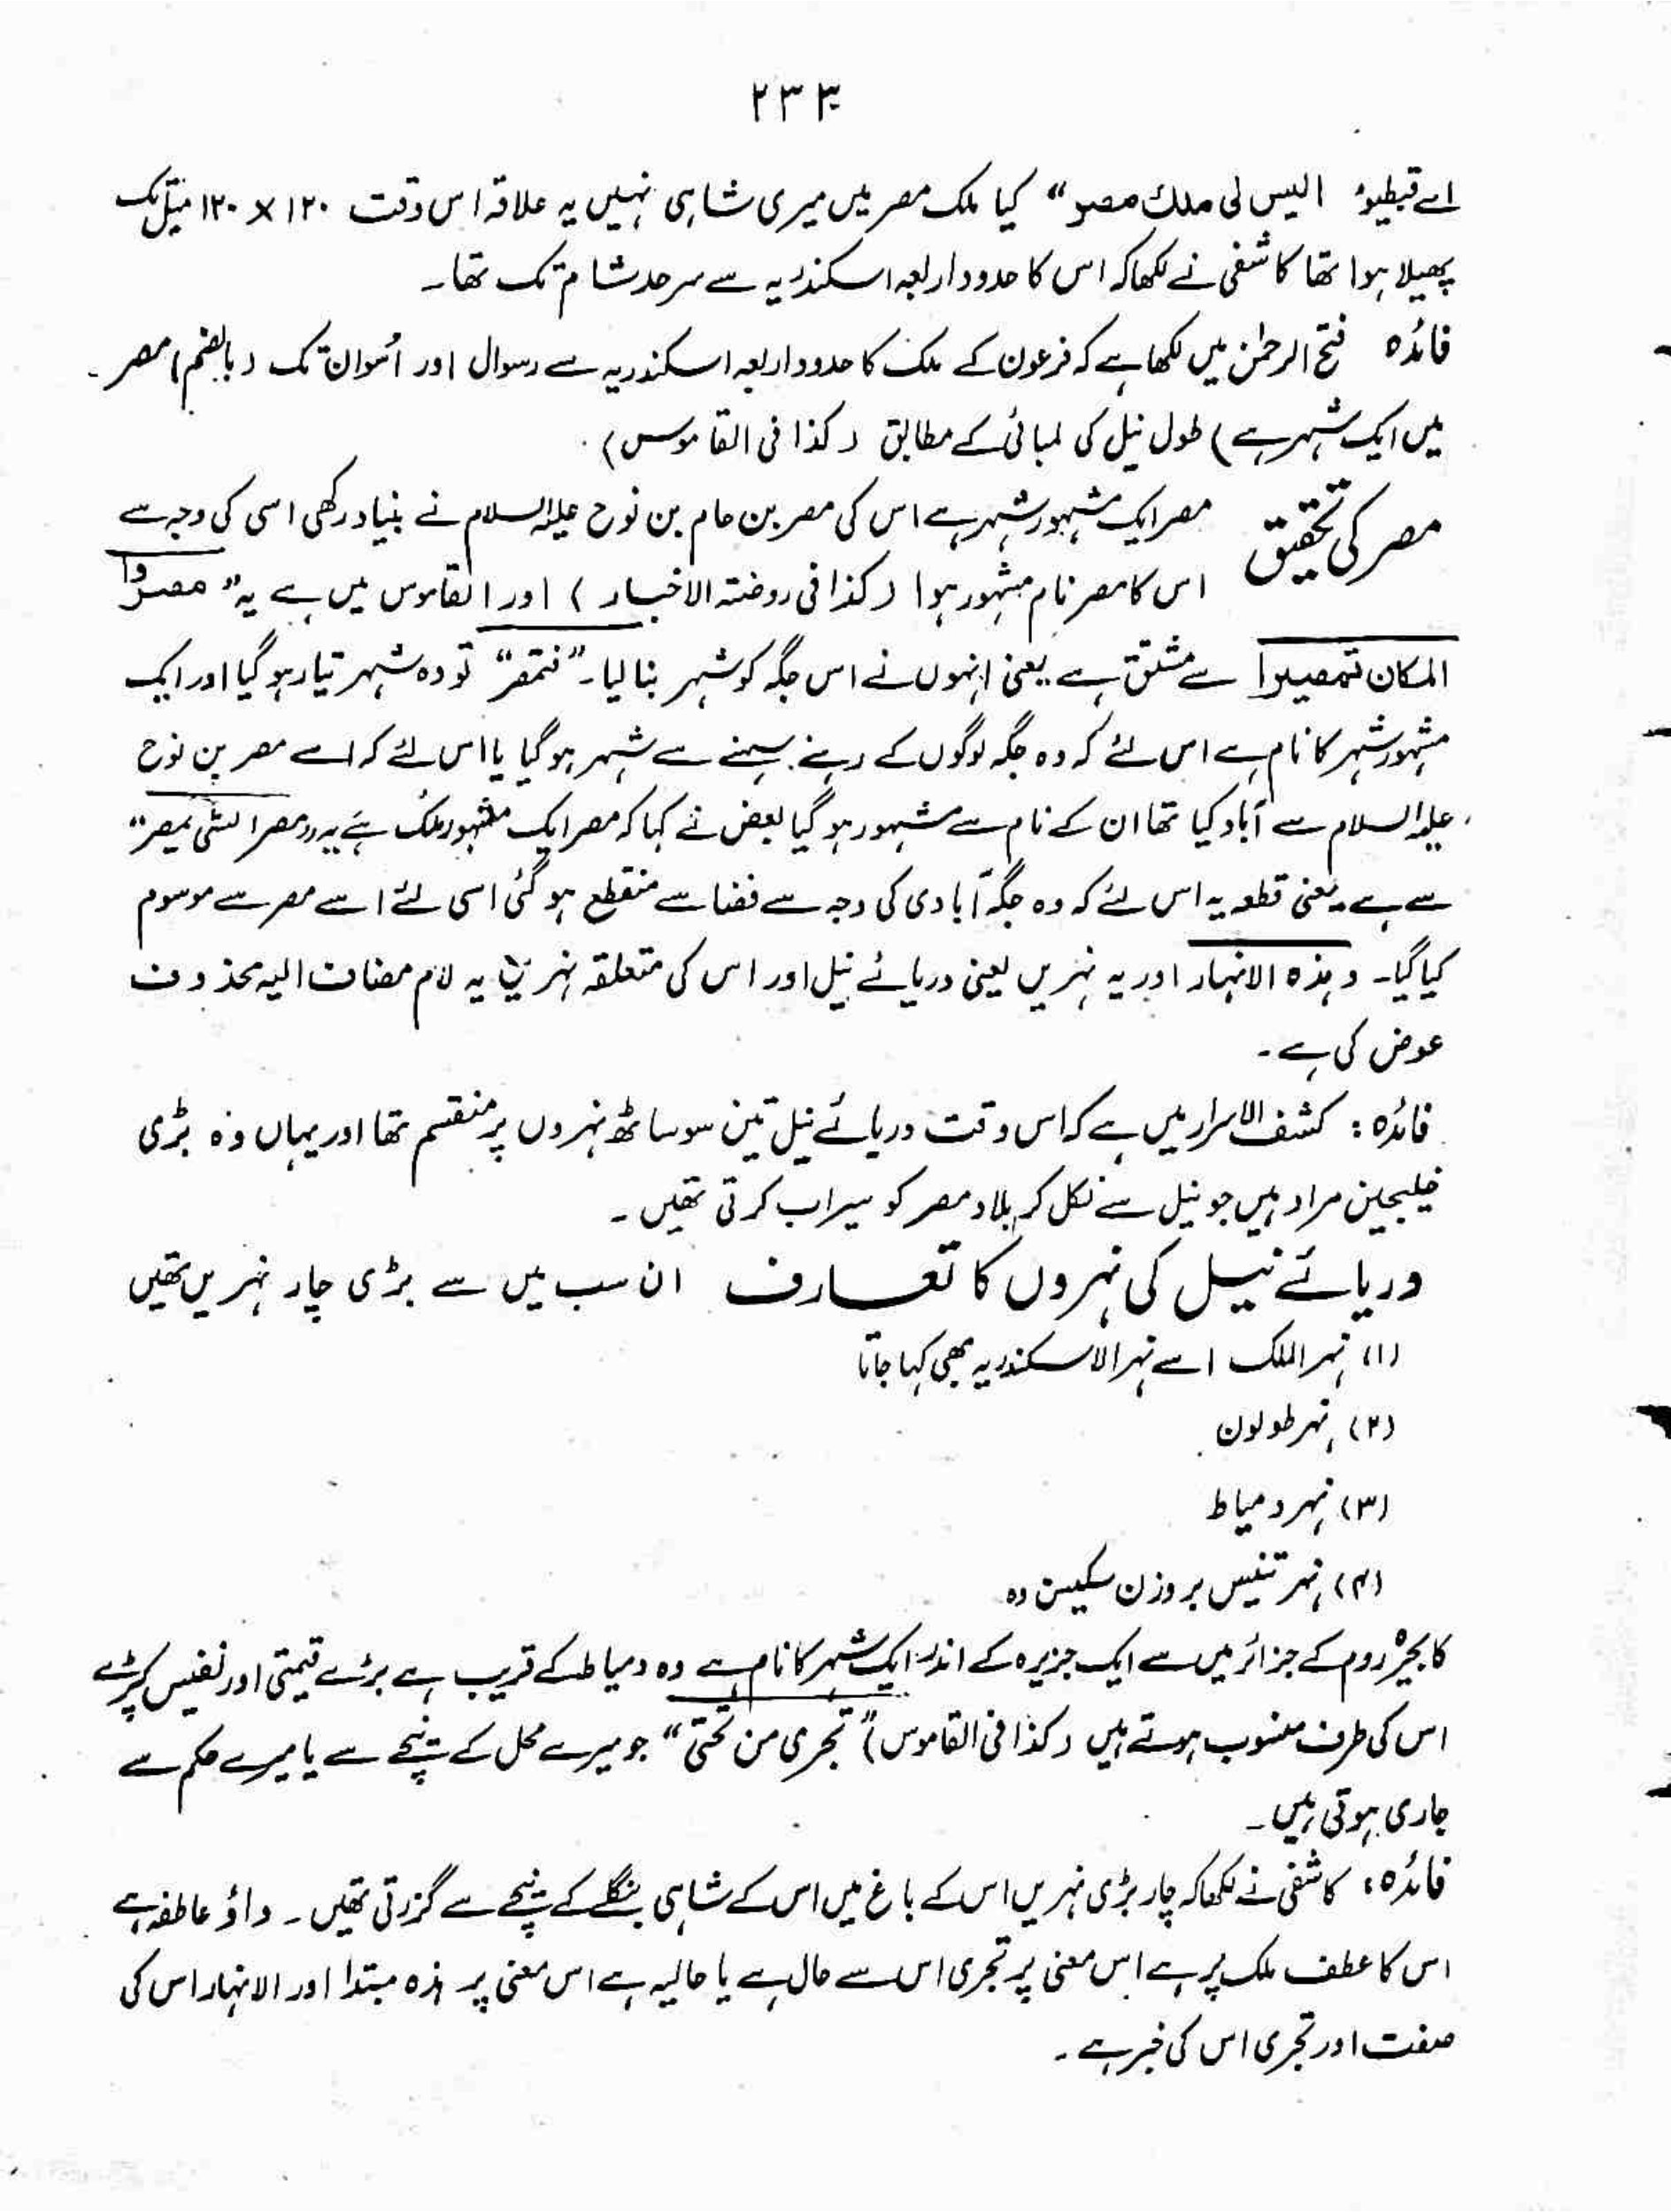 ۲۳۳
اے قبطیو! الیس لی ملک مصر“ کیا ملک مصر میں میری شاہی نہیں یہ علاقہ اس وقت ۱۲۰ × ۱۲۰ میل تک
پھیلا ہوا تھا کاشفی نے لکھا کہ اس کا حدود اربعہ اسکندریہ سے سرحد شام تک تھا۔
فائدہ فتح الرحمٰن میں لکھا ہے کہ فرعون کے ملک کا حدود اربعہ اسکندریہ سے رسوال اور اُسوان تک (بالضم) مصر۔
میں ایک شہر ہے) طول نیل کی لمبائی کے مطابق (کذا فی القاموس)۔
مصر کی تحقیق مصر ایک مشہور شہر ہے اس کی مصر بن حام بن نوح علیہ السلام نے بنیاد رکھی اسی کی وجہ سے
اس کا مصر نام مشہور ہوا (کذا فی روضتہ الاخبار) اور القاموس میں ہے یہ ”مصروا
المکان تمصیرا سے مشتق ہے یعنی انہوں نے اس جگہ کو شہر بنا لیا۔ ”فتمصر“ تو وہ شہر تیار ہو گیا اور ایک
مشہور شہر کا نام ہے اس لئے کہ وہ جگہ لوگوں کے رہنے سہنے سے شہر ہو گیا یا اس لئے کہ اسے مصر بن نوح
علیہ السلام سے آباد کیا تھا ان کے نام سے مشہور ہو گیا بعض نے کہا کہ مصر ایک مشہور ملک ہے یہ ”مصر الشی یمصر“
سے ہے یعنی قطعہ یہ اس لئے کہ وہ جگہ آبادی کی وجہ سے فضا سے منقطع ہو گئی اسی لئے اسے مصر سے موسوم
کیا گیا۔ وہذہ الانہار اور یہ نہریں یعنی دریائے نیل اور اس کی متعلقہ نہریں یہ لام مضاف الیہ محذوف
عوض کی ہے۔
فائدہ: کشف الاسرار میں ہے کہ اس وقت دریائے نیل تین سو ساٹھ نہروں پر منقسم تھا اور یہاں وہ بڑی
خلیجین مراد ہیں جو نیل سے نکل کر بلاد مصر کو سیراب کرتی تھیں۔
دریائے نیل کی نہروں کا تعارف ان سب میں سے بڑی چار نہریں تھیں
(۱) نہر الملک اسے نہر الاسکندریہ بھی کہا جاتا
(۲) نہر طولون
(۳) نہر دمیاط
(۴) نہر تنیس بروزن سکین وہ
کا بحیرۂ روم کے جزائر میں سے ایک جزیرہ کے اندر ایک شہر کا نام ہے وہ دمیاط کے قریب ہے بڑے قیمتی اور نفیس کپڑے
اس کی طرف منسوب ہوتے ہیں (کذا فی القاموس) ”تجری من تحتی“ جو میرے محل کے نیچے سے یا میرے حکم سے
جاری ہوتی ہیں۔
فائدہ: کاشفی نے لکھا کہ چار بڑی نہریں اس کے باغ میں اس کے شاہی بنگلے کے نیچے سے گزرتی تھیں۔ واؤ عاطفہ ہے
اس کا عطف ملک پر ہے اس معنی پر تجری اس سے حال ہے یا حالیہ ہے اس معنی پر ہذہ مبتدا اور الانہار اس کی
صفت اور تجری اس کی خبر ہے۔